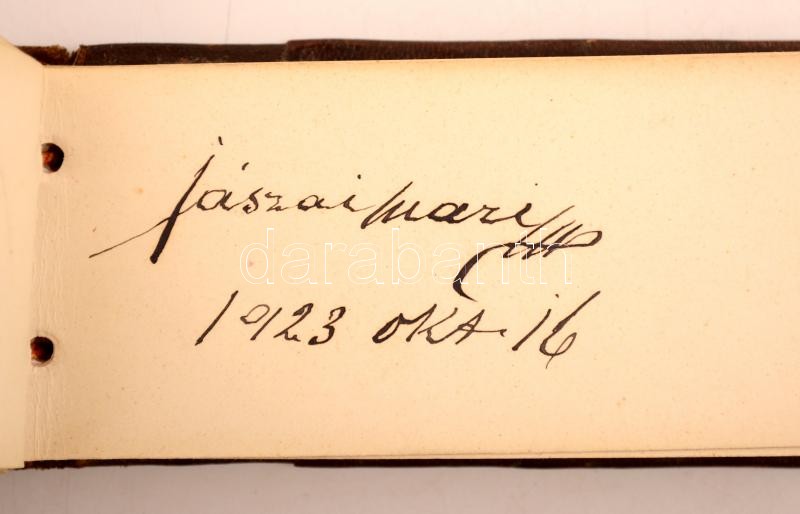 Jászai Mari
darabanth
1923 okt. 16